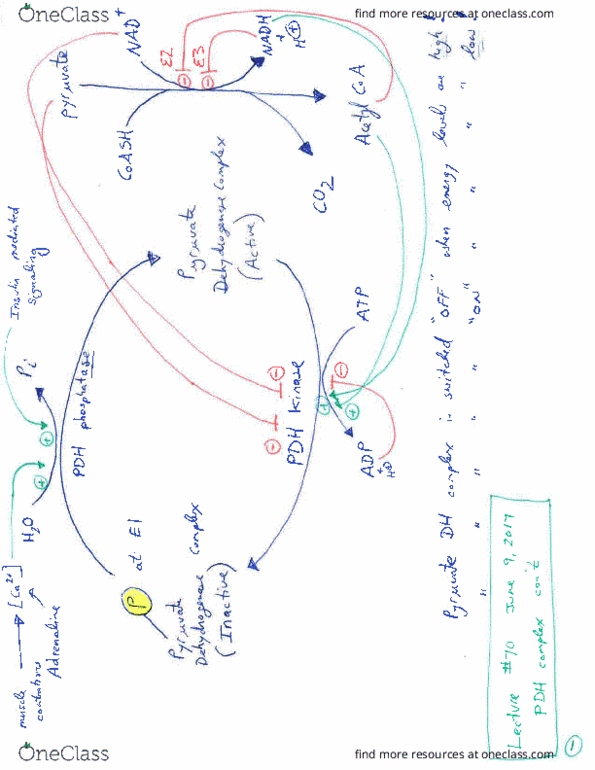 OneClass
find more resources at oneclass.com
Lecture #70 June 9, 2017
PDH complex con't
1
Pyruvate DH complex is switched "OFF" when energy levels are high
" " " " "ON" " " " " low
pyruvate
NAD+
E2
E3
NADH
+
H+
CoASH
Acetyl CoA
CO2
Pyruvate
Dehydrogenase Complex
(Active)
ATP
PDH kinase
ADP
+
H+
Insulin mediated
signaling
Pi
PDH phosphatase
H2O
at E1
P
Pyruvate
Dehydrogenase Complex
(Inactive)
muscle
contractions
[Ca2+]
Adrenaline
OneClass
find more resources at oneclass.com